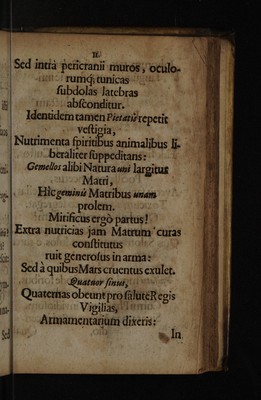 II.
Sed intrà pericranii muros, oculo-
rumq; tunicas
subdolas latebras
absconditur.
Identidem tamen Pietatis repetit
vestigia,
Nutrimenta spiritibus animalibus li-
beraliter suppeditans:
Gemellos alibi Natura uni largitur
Matri,
Hîc geminis Matribus unam
prolem.
Mirificus ergò partus!
Extra nutricias jam Matrum curas
constitutus
ruit generosus in arma:
Sed à quibus Mars cruentus exulet.
Quatuor sinus,
Quaternas obeunt pro salute Regis
Vigilias,
Armamentarium dixeris:
In